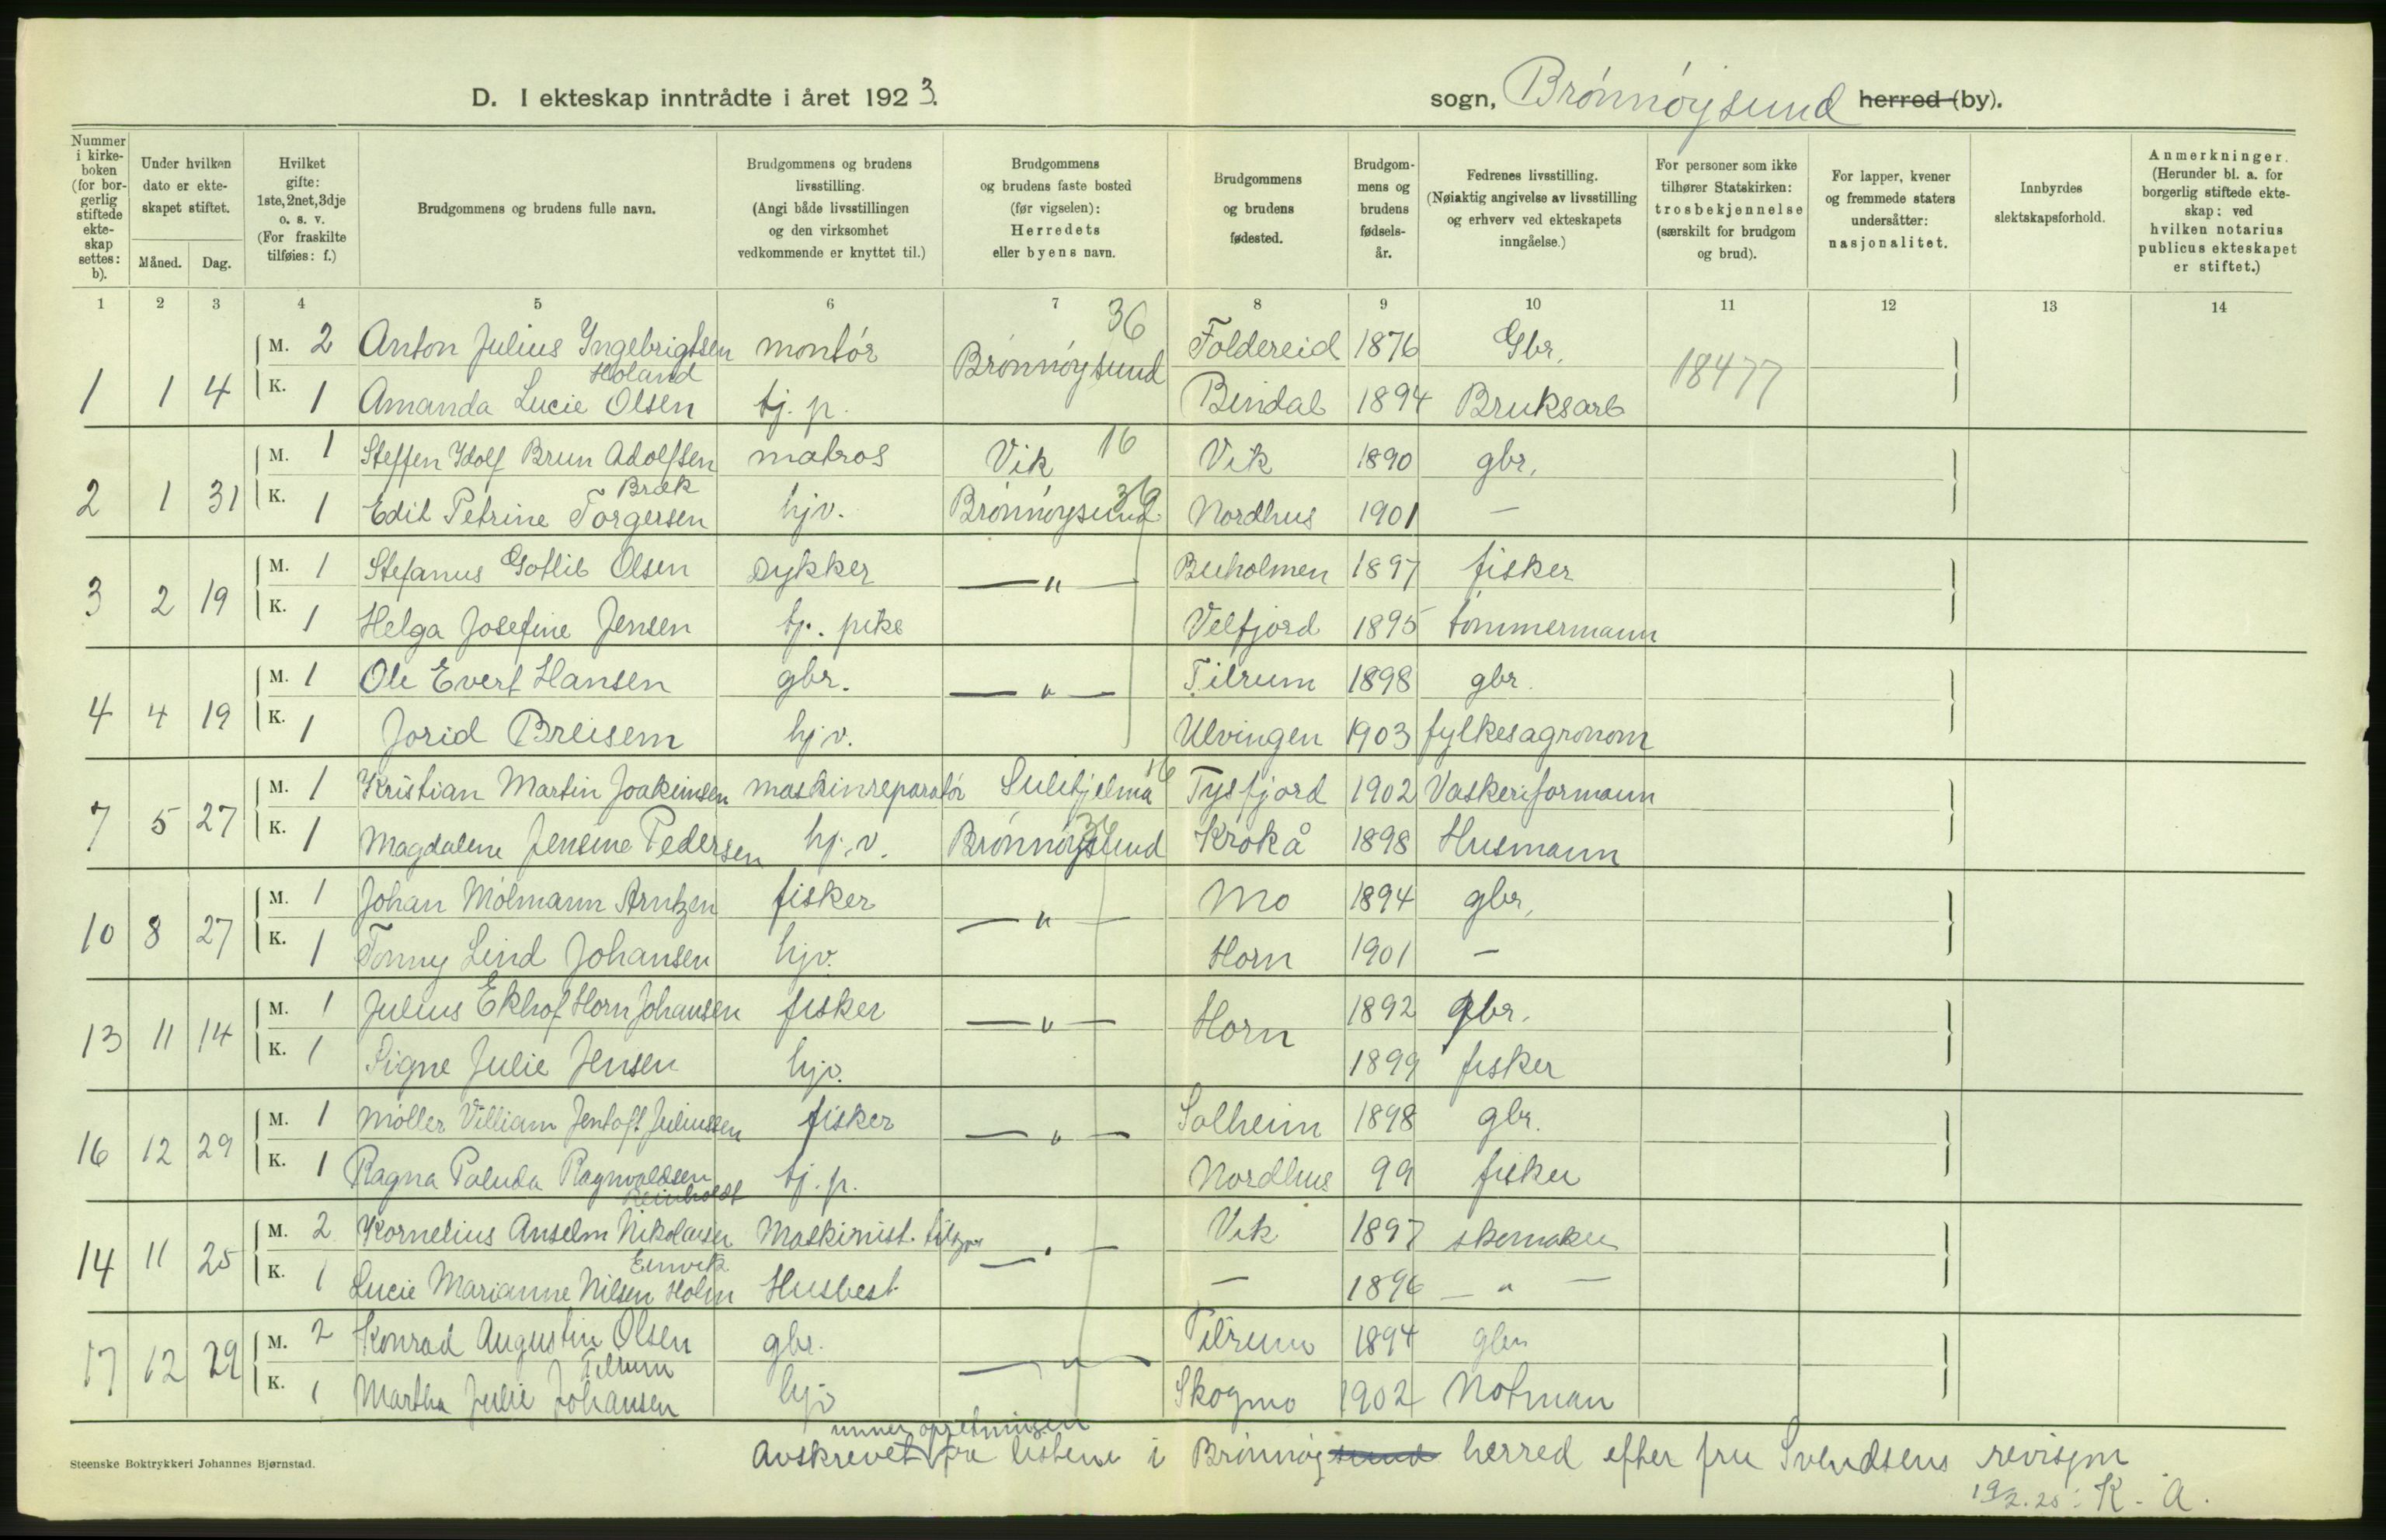 D. I ekteskap inntrådte i året 1923.
sogn, Brønnøysund herred (by).
Nummer i kirkeboken (for borgerlig stiftede ekteskap settes: b).
Under hvilken dato er ekteskapet stiftet.
Måned. Dag.
Hvilket gifte: 1ste, 2net, 3dje o. s. v. (For fraskilte tilføies: f.)
Brudgommens og brudens fulle navn.
Brudgommens og brudens livsstilling. (Angi både livsstillingen og den virksomhet vedkommende er knyttet til.)
Brudgommens og brudens faste bosted (før vigselen): Herredets eller byens navn.
Brudgommens og brudens fødested.
Brudgommens og brudens fødselsår.
Fedrenes livsstilling. (Nøiaktig angivelse av livsstilling og erhverv ved ekteskapets inngåelse.)
For personer som ikke tilhører Statskirken: trosbekjennelse (særskilt for brudgom og brud).
For lapper, kvener og fremmede staters undersåtter: nasjonalitet.
Innbyrdes slektskapsforhold.
Anmerkninger. (Herunder bl. a. for borgerlig stiftede ekteskap: ved hvilken notarius publicus ekteskapet er stiftet.)
1 2 3 4 5 6 7 8 9 10 11 12 13 14
36
M. 2 Anton Julius Ingebrigtsen montør Brønnøysund Foldereid 1876 Gbr. 18477
Holand
1 1 4 K. 1 Amanda Lucie Olsen tj. p. Bindal 1894 Bruksarb
M. 1 Steffen Idolf Brun Adolfsen matros Vik 16 Vik 1890 gbr.
Bræk
2 1 31 K. 1 Edit Petrine Torgersen hjv. Brønnøysund 36 Nordhus 1901 —
M. 1 Stefanus Gotlib Olsen Dykker — " — Buholmen 1897 fisker
3 2 19 K. 1 Helga Josefine Jensen tj. pike Velfjord 1895 tømmermann
M. 1 Ole Evert Hansen gbr. — " — Tilrum 1898 gbr.
4 4 19 K. 1 Jorid Breisem hjv. Ulvingen 1903 fylkesagronom
M. 1 Kristian Martin Joakimsen maskinreparatør Sulitjelma Tysfjord 1902 Vaskeriformann
7 5 27 K. 1 Magdalene Jensine Pedersen hj.v. Brønnøysund 36 Krokå 1898 Husmann
M. 1 Johan Mølmann Arntzen fisker — " — Mo 1894 gbr.
10 8 27 K. 1 Tonny Lind Johansen hjv. Horn 1901 —
M. 1 Julius Ekhof Horn Johansen fisker — " — Horn 1892 gbr.
13 11 14 K. 1 Signe Julie Jensen hjv. 1899 fisker
M. 1 Møller Villiam Jentoft Juliussen fisker — " — Solheim 1898 gbr.
16 12 29 K. 1 Ragna Paluda Ragnvaldsen tj. p. Nordhus 99 fisker
Reinholdt
M. 2 Kornelius Anselm Nikolaisen Maskinist. — " — Vik 1897 skomaker
14 11 25 K. 1 Lucie Marianne Nilsen Holm Husbest. — 1896 — " —
M. 2 Konrad Augustin Olsen gbr. — " — Tilrum 1894 gbr
Tilrum
17 12 29 K. 1 Martha Julie Johansen hjv Skogmo 1902 Notman
unner opretningen
Avskrevet fra listene i Brønnøysund herred efter fru Svendsens revisjon
19/2.25. K. A.
Steenske Boktrykkeri Johannes Bjørnstad.